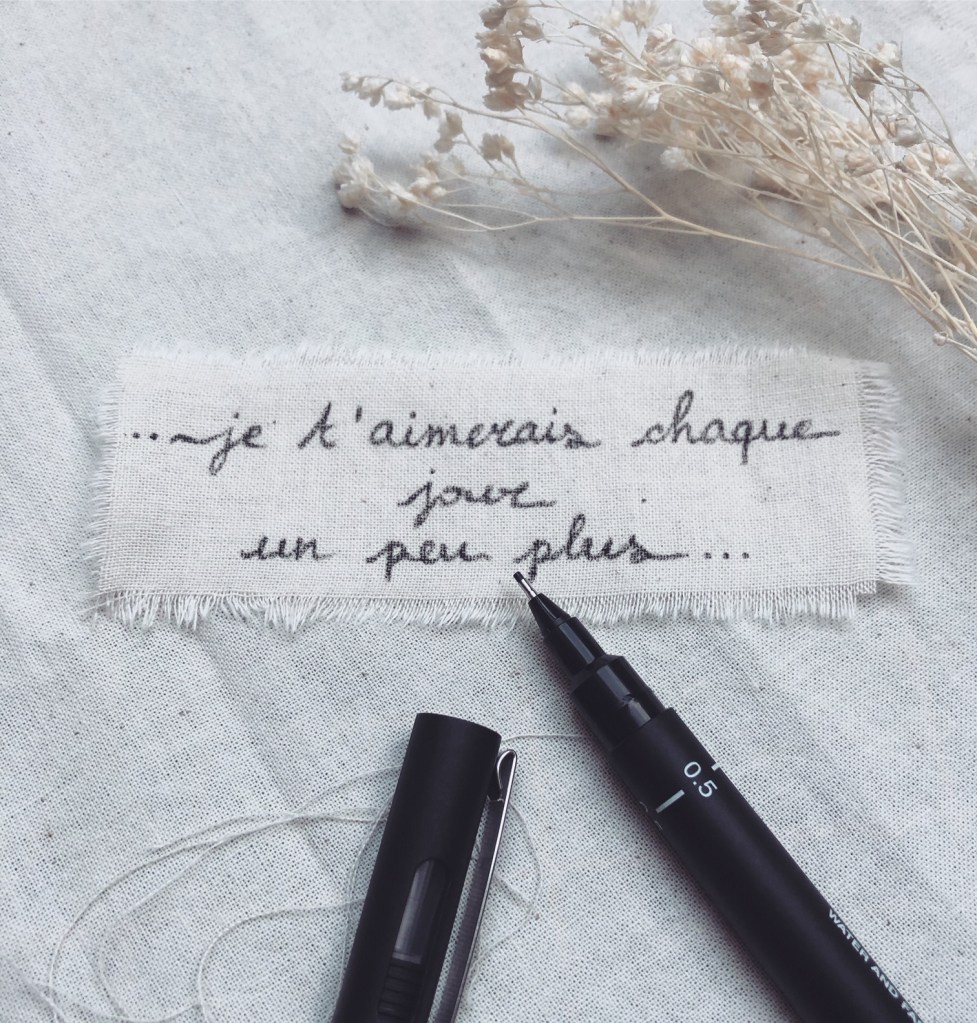 ...je t'aimerais chaque
jour
un peu plus...
0.5
WATER AND